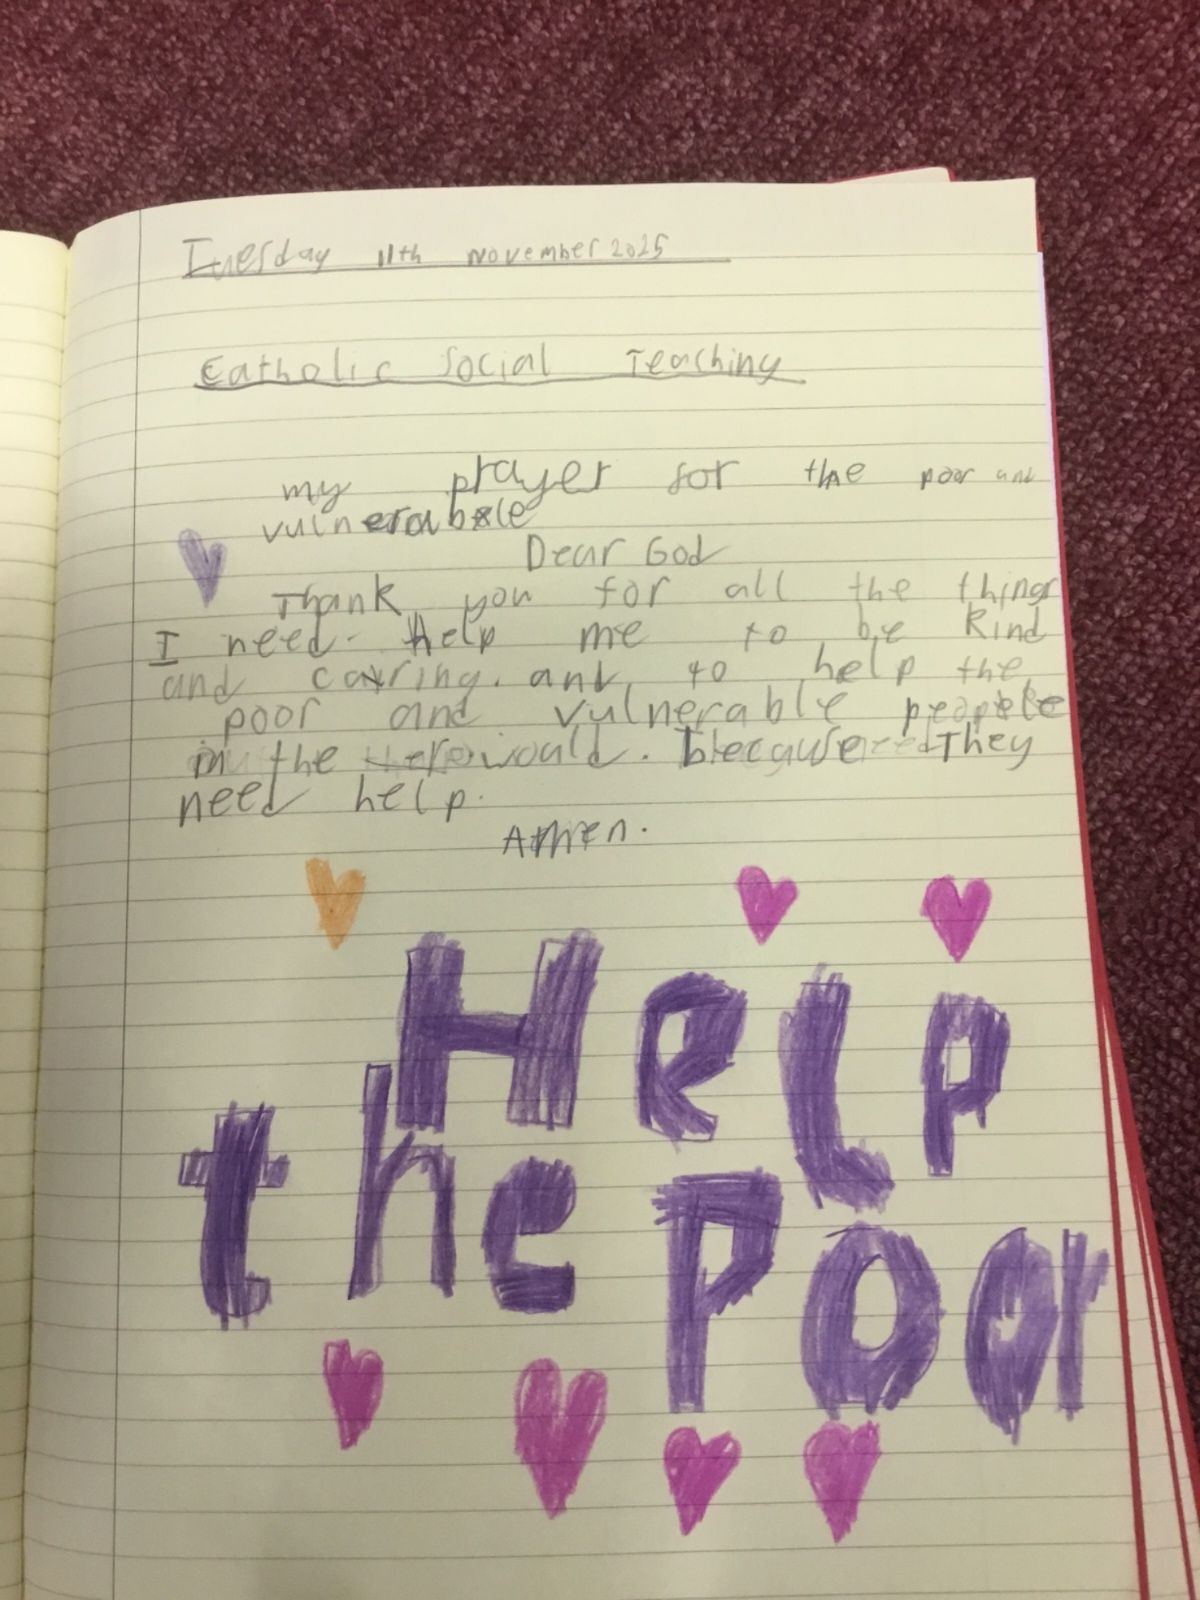 Tuesday 11th November 2025
Catholic Social Teaching
my prayer for the poor and
vulnerable
Dear God
Thank you for all the things
I need. Help me to be kind
and caring. and to help the
poor and vulnerable people
in the would. because They
need help.
Amen.
HeLp
the Poor